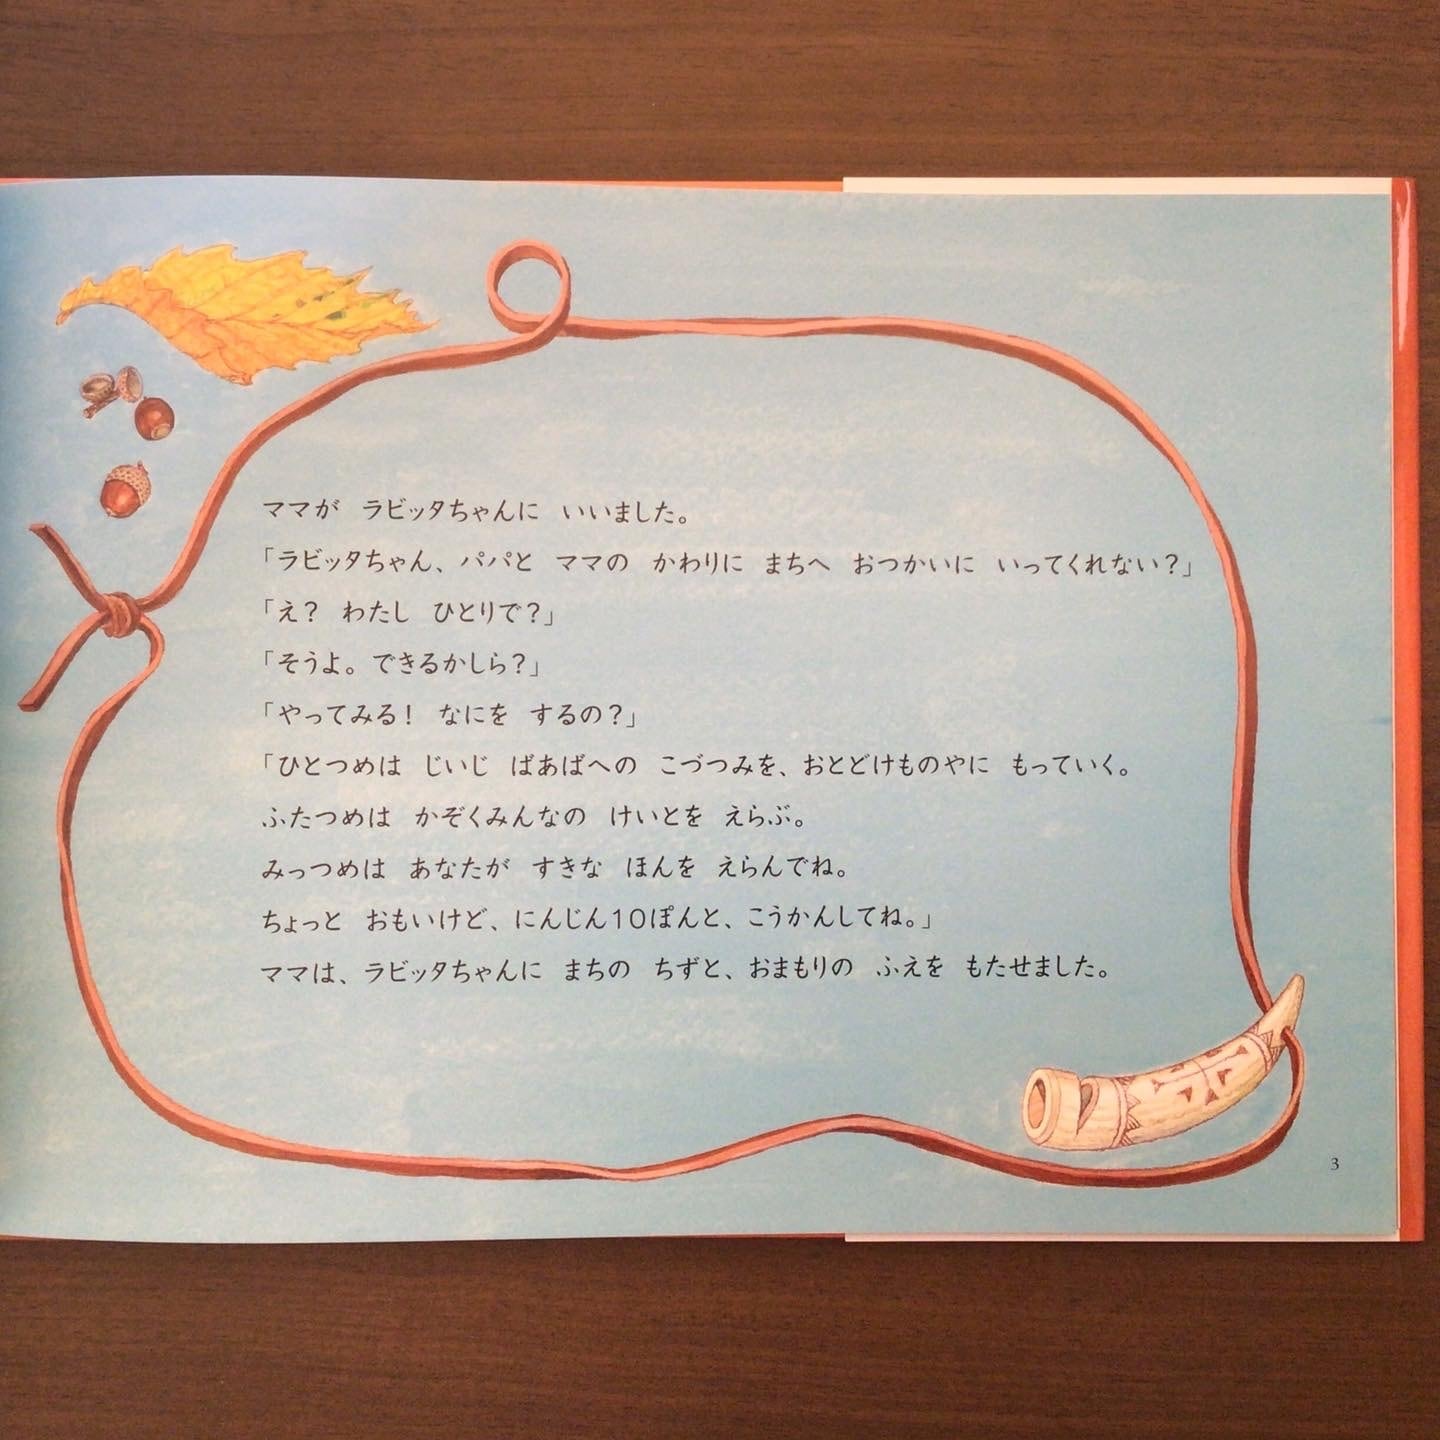 ママが　ラビッタちゃんに　いいました。
「ラビッタちゃん、パパと　ママの　かわりに　まちへ　おつかいに　いってくれない？」
「え？　わたし　ひとりで？」
「そうよ。できるかしら？」
「やってみる！　なにを　するの？」
「ひとつめは　じいじ　ばあばへの　こづつみを、おとどけものやに　もっていく。
ふたつめは　かぞくみんなの　けいとを　えらぶ。
みっつめは　あなたが　すきな　ほんを　えらんでね。
ちょっと　おもいけど、にんじん10ぽんと、こうかんしてね。」
ママは、ラビッタちゃんに　まちの　ちずと、おまもりの　ふえを　もたせました。
3